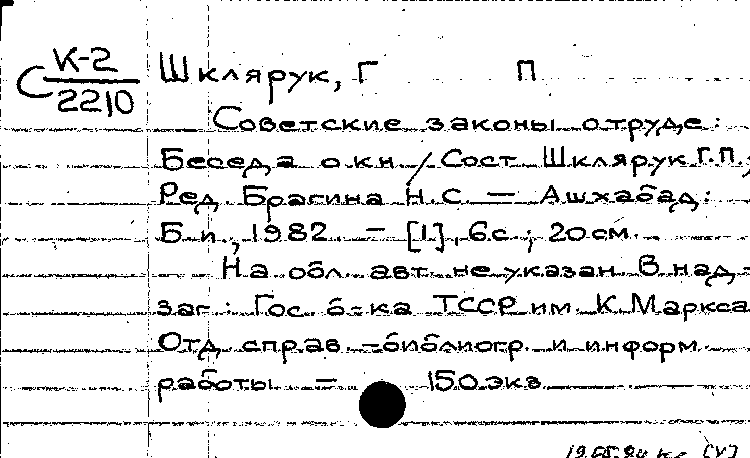 С К-2/2210 Шклярук, Г П
Советские законы о труде:
Беседа о кн. / Сост Шклярук Г.П.;
Ред. Брагина Н.С. — Ашхабад:
Б.и., 1982. — [1], 6с.; 20см.
На обл. авт. не указан. В над-
заг.: Гос. б-ка ТССР им. К. Маркса
Отд. справ.-библиогр. и информ.
работы. = 150 экз.